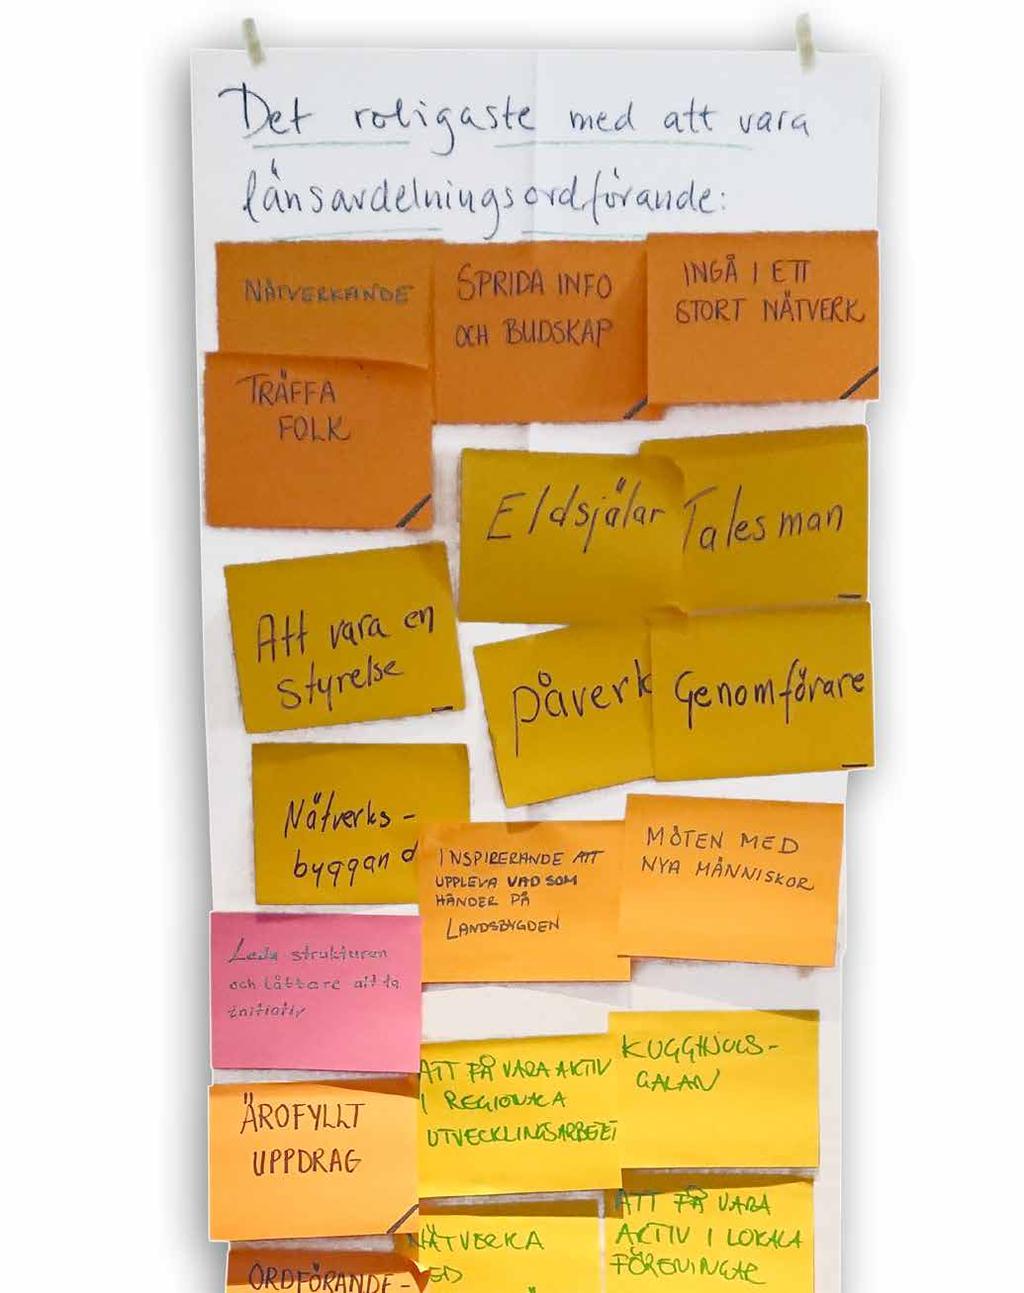 Det roligaste med att vara
länsavdelningsordförande:
NÄTVERKANDE
SPRIDA INFO
OCH BUDSKAP
INGÅ I ETT
STORT NÄTVERK
TRÄFFA
FOLK
Eldsjälar
Talesman
Att vara en
styrelse
påverk
Genomförare
Nätverks-
byggand
INSPIRERANDE ATT
UPPLEVA VAD SOM
HÄNDER PÅ
LANDSBYGDEN
MÖTEN MED
NYA MÄNNISKOR
Leda strukturen
och lättare att ta
initiativ
ATT FÅ VARA AKTIV
I REGIONALA
UTVECKLINGSARBETET
KUGGHJULS-
GALAN
ÄROFYLLT
UPPDRAG
NÄTVERKA
ATT FÅ VARA
AKTIV I LOKALA
FÖRENINGAR
ORDFÖRANDE-